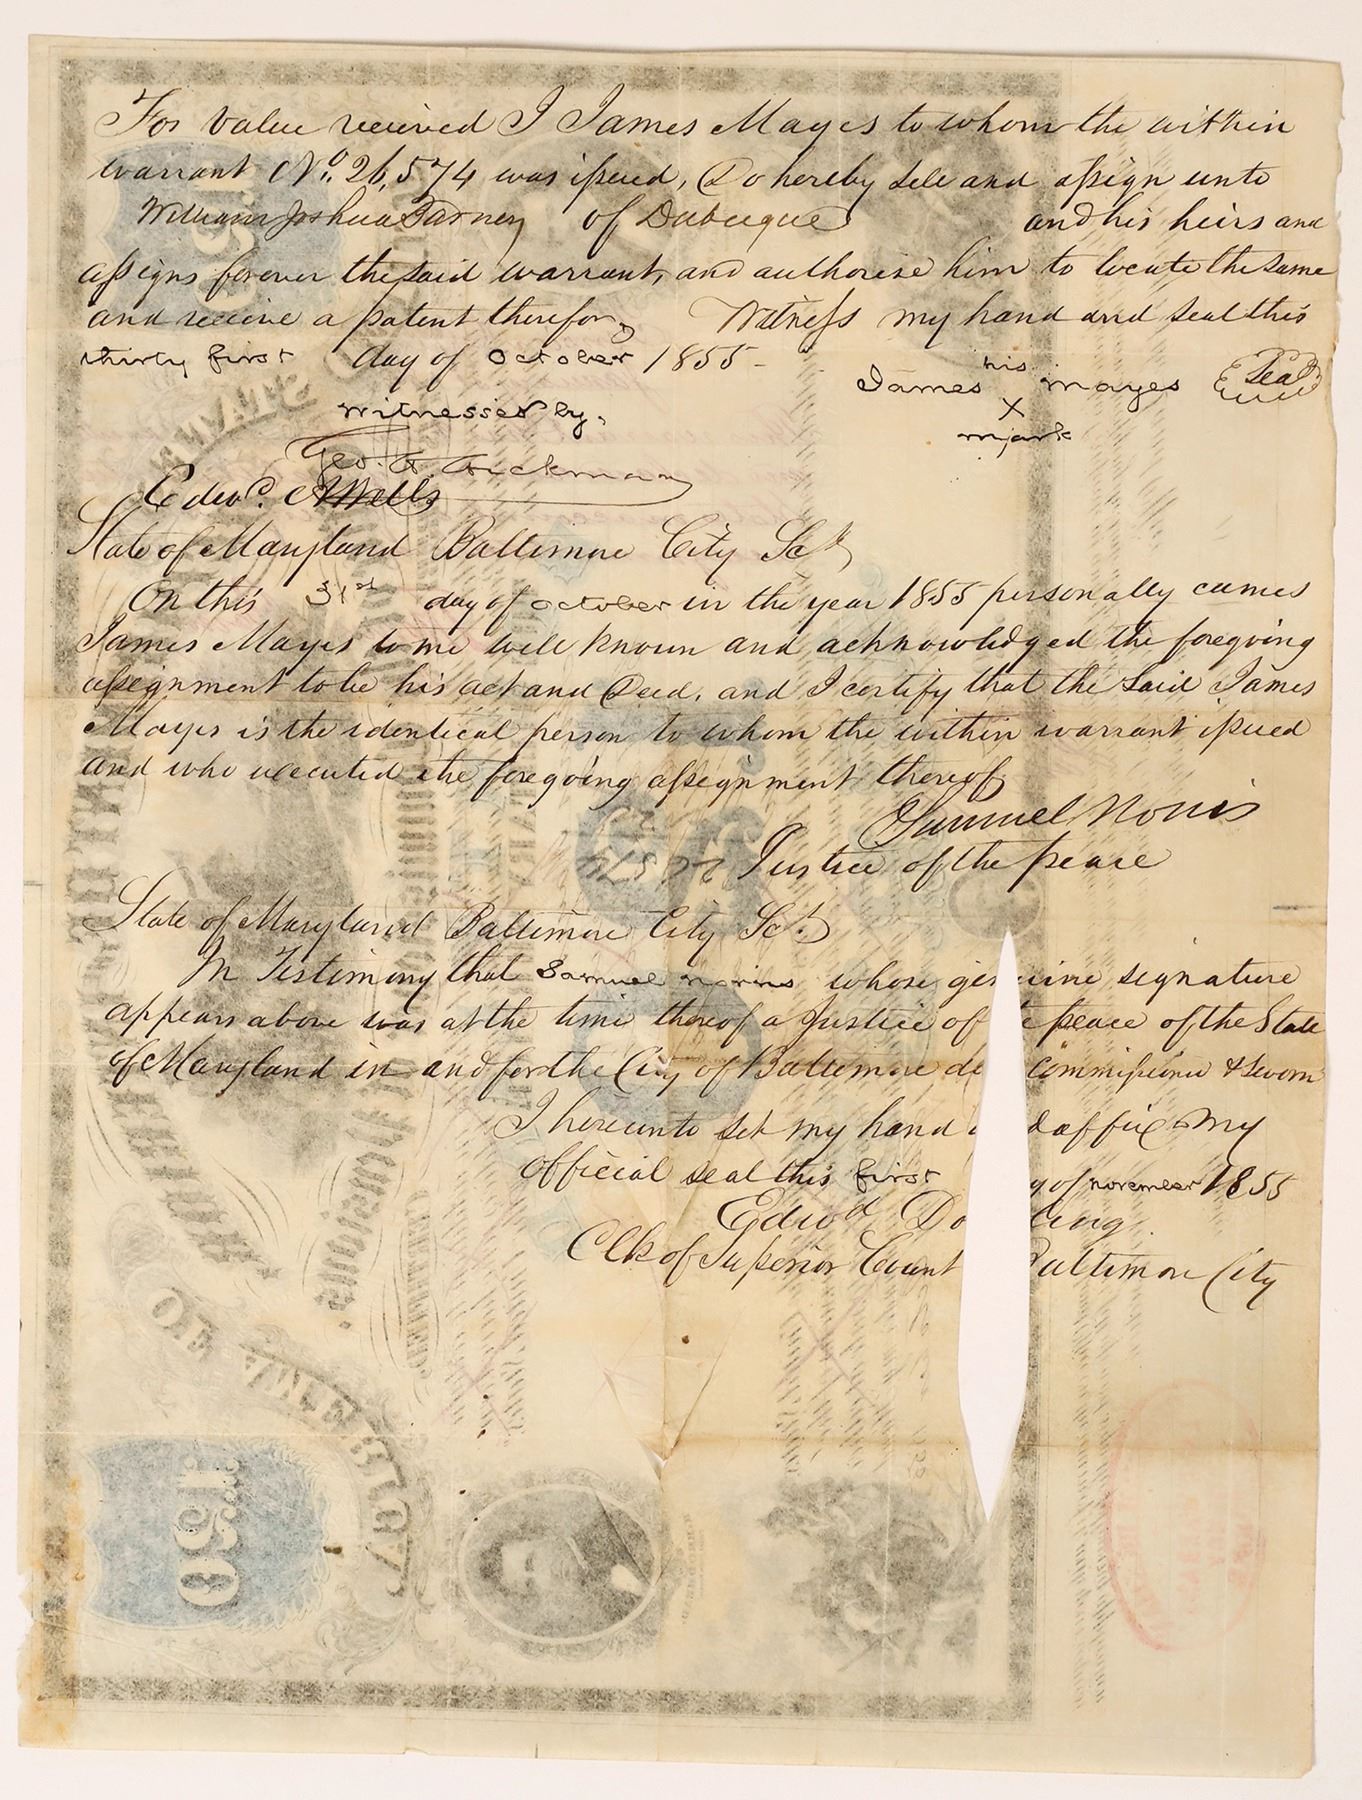 For value received I James Mayes to whom the within
warrant No. 26,574 was issued, Do hereby sele and assign unto
William Joshua Barney of Dubuque and his heirs and
assigns forever the said warrant, and authorise him to locate the same
and receive a patent therefor, Witness my hand and seal this
thirty first day of October 1855 -
his
James X Mayes Seal
mark
witnessed by,
Geo. A. Hickman
Edwd. A Mells
State of Maryland Baltimore City Sct
On this 31st day of October in the year 1855 personally cames
James Mayes to me well known and acknowledged the foregoing
assignment to be his act and Deed, and I certify that the said James
Mayes is the identical person to whom the within warrant issued
and who executed the foregoing assignment thereof
Samuel Norris
26574 Justice of the peace
State of Maryland Baltimore City Sct.
In Testimony that Samuel Norris whose genuine signature
appears above was at the time thereof a Justice of e peace of the State
of Maryland in and for the City of Baltimore du Commissioned & sworn
I hereunto set my hand d affix my
official seal this first y of November 1855
Edwd Do ling.
Clk of Superior Court Baltimore City
STATES
OF AMERICA
160